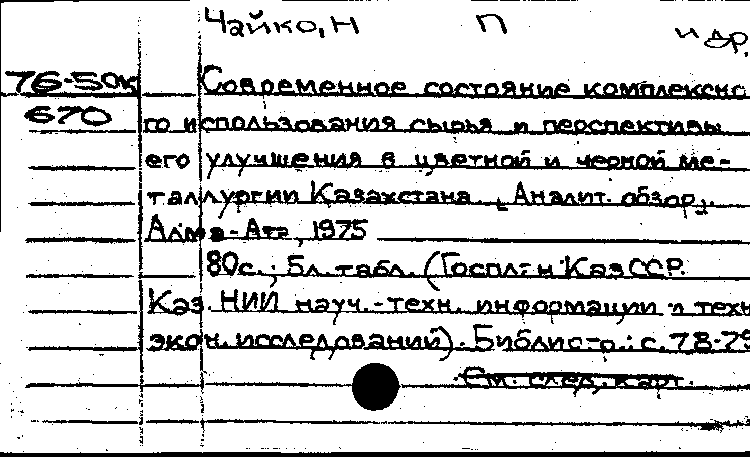 Чайко, Н П и др.
76-50к Современное состояние комплексно
670 го использования сырья и перспективы
его улучшения в цветной и черной ме-
таллургии Казахстана. [Аналит. обзор].
Алма-Ата, 1975
80с.; 5л. табл. (Госплан КазССР.
Каз. НИИ науч.-техн. информации и техн
экон. исследований). Библиогр.: с. 78-79
См. след. карт.